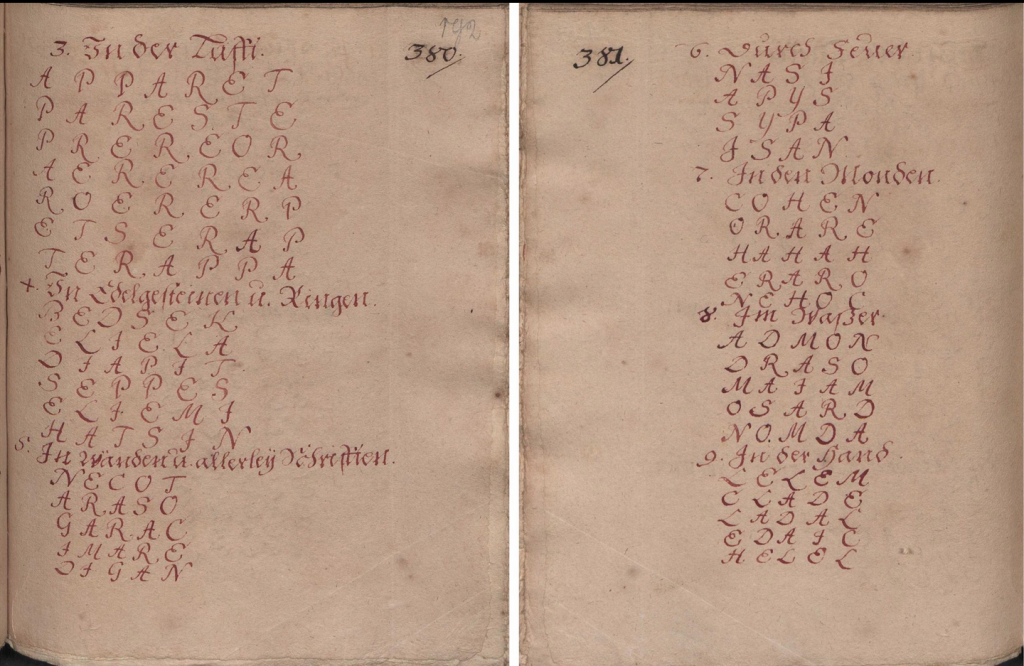 192
380.
3. In der Lufft.
A P P A R E T
P A R E S T E
P R E R E O R
A E R E R E A
R O E R E R P
E T S E R A P
T E R A P P A
4. In Edelgesteinen u. Ringen.
B E D S E K
E L I E L A
D I A P I T
S E P P E S
E L I E M I
H A T S I N
5. In wänden u. allerley Schrifften.
N E C O T
A R A S O
G A R A C
I M A R E
D I G A N
381.
6. Durch Feuer.
N A S I
A P Y S
S Y P A
I S A N
7. In den Monden.
C O H E N
O R A R E
H A H A H
E R A R O
N E H O C
8. Im Waßer.
A D M O N
D R A S O
M A I A M
O S A R D
N O M D A
9. In der Hand.
L E L E M
E L A D E
L A D A L
E D A I C
H E L E L